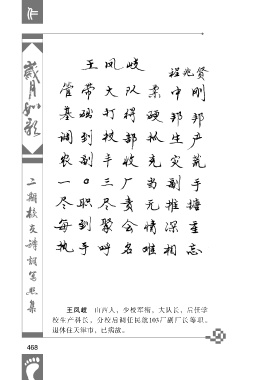 歲月如歌
二期校友詩詞寫照集
王凤岐
兆贤
管带大队素中刚
基础打得硬邦邦
调到校部抓生产
农副丰收充灾荒
一〇三厂当副手
尽职尽责无推搪
每到聚会情深
执手呼名难相忘
王凤岐 山西人，少校军衔。大队长，后任学
校生产科长，分校后调任民航103厂副厂长等职。
退休住天津市，已病故。
468